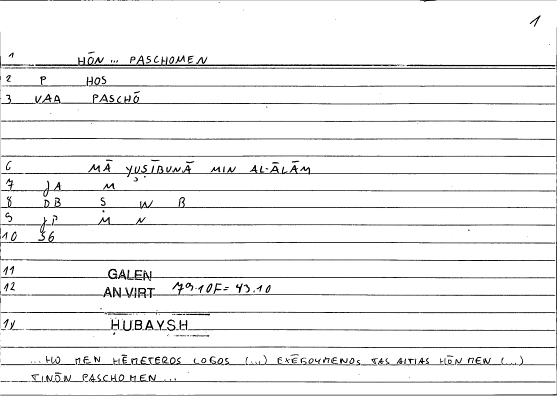 1
1 HŌN ... PASCHOMEN
2 P HOS
3 VAA PASCHŌ
6 MĀ YUṢĪBUNĀ MIN AL-ĀLĀM
7 JA M
8 DB Ṣ W B
9 JP M N
10 36
11 GALEN
12 AN VIRT 79.10F = 43.10
14 ḤUBAYSH
... HO MEN HĒMETEROS LOGOS (...) EXĒGOYMENOS TAS AITIAS HŌN MEN (...)
TINŌN PASCHOMEN ...